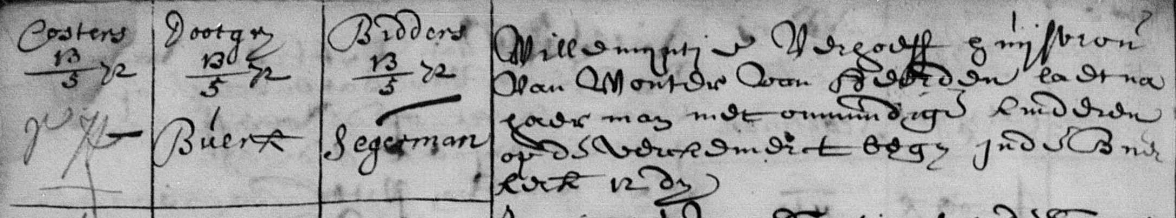 Costers
13/5 72
Dootgr
13/5 72
Buerk
Bidders
13/5 72
Segerman
Willemyntje Verhoeff huijsvrou
van Wouter van Heerden laet na
haer man met onmundige kinderen
op de Verckemerct begr in de Buer
kerk 12 dr